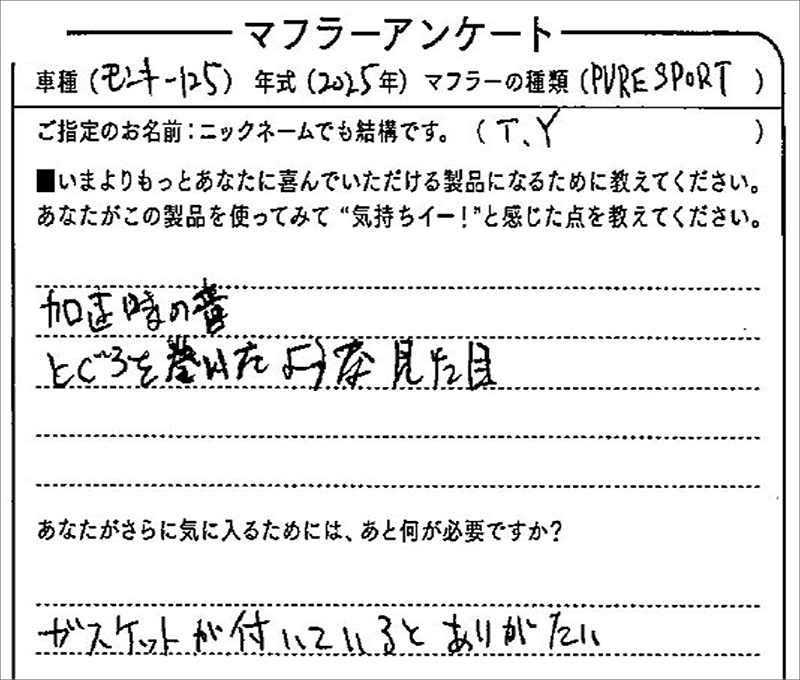 マフラーアンケート
車種(モンキー125) 年式(2025年) マフラーの種類(PURE SPORT)
ご指定のお名前:ニックネームでも結構です。(T.Y)
■いまよりもっとあなたに喜んでいただける製品になるために教えてください。
あなたがこの製品を使ってみて“気持ちイー!”と感じた点を教えてください。
加速時の音
とぐろを巻いたような見た目
あなたがさらに気に入るためには、あと何が必要ですか?
ガスケットが付いているとありがたい